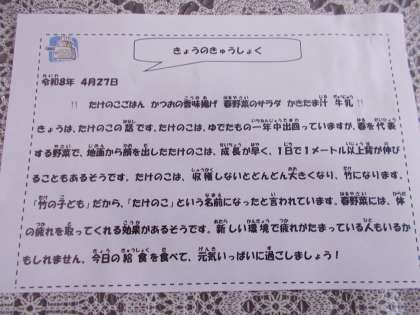 きょうのきゅうしょく
令和8年 4月27日
!! たけのこごはん かつおの香味揚げ 春野菜のサラダ かきたま汁 牛乳 !!
きょうは、たけのこの話です。たけのこは、ゆでたもの一年中出回っていますが、春を代表
する野菜で、地面から顔を出したたけのこは、成長が早く、1日で1メートル以上背が伸び
ることもあるそうです。たけのこは、収穫しないとどんどん大きくなり、竹になります。
「竹の子ども」だから、「たけのこ」という名前になったと言われています。春野菜には、体
の疲れを取ってくれる効果があるそうです。新しい環境で疲れがたまっている人もいるか
もしれません。今日の給食を食べて、元気いっぱいに過ごしましょう!